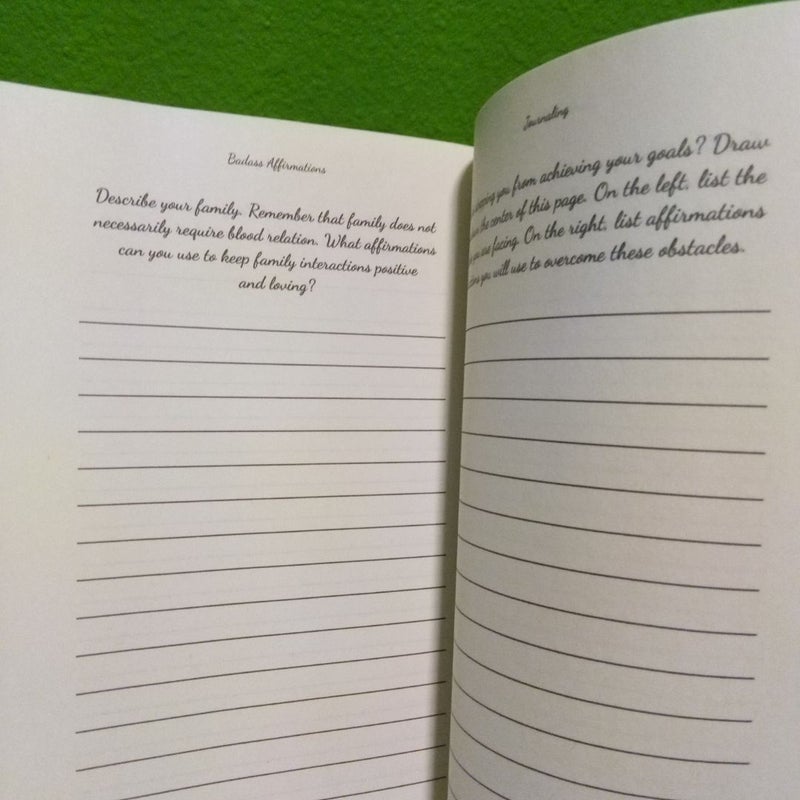 Badass Affirmations
Describe your family. Remember that family does not
necessarily require blood relation. What affirmations
can you use to keep family interactions positive
and loving?
Journaling
you from achieving your goals? Draw
the center of this page. On the left, list the
you are facing. On the right, list affirmations
you will use to overcome these obstacles.